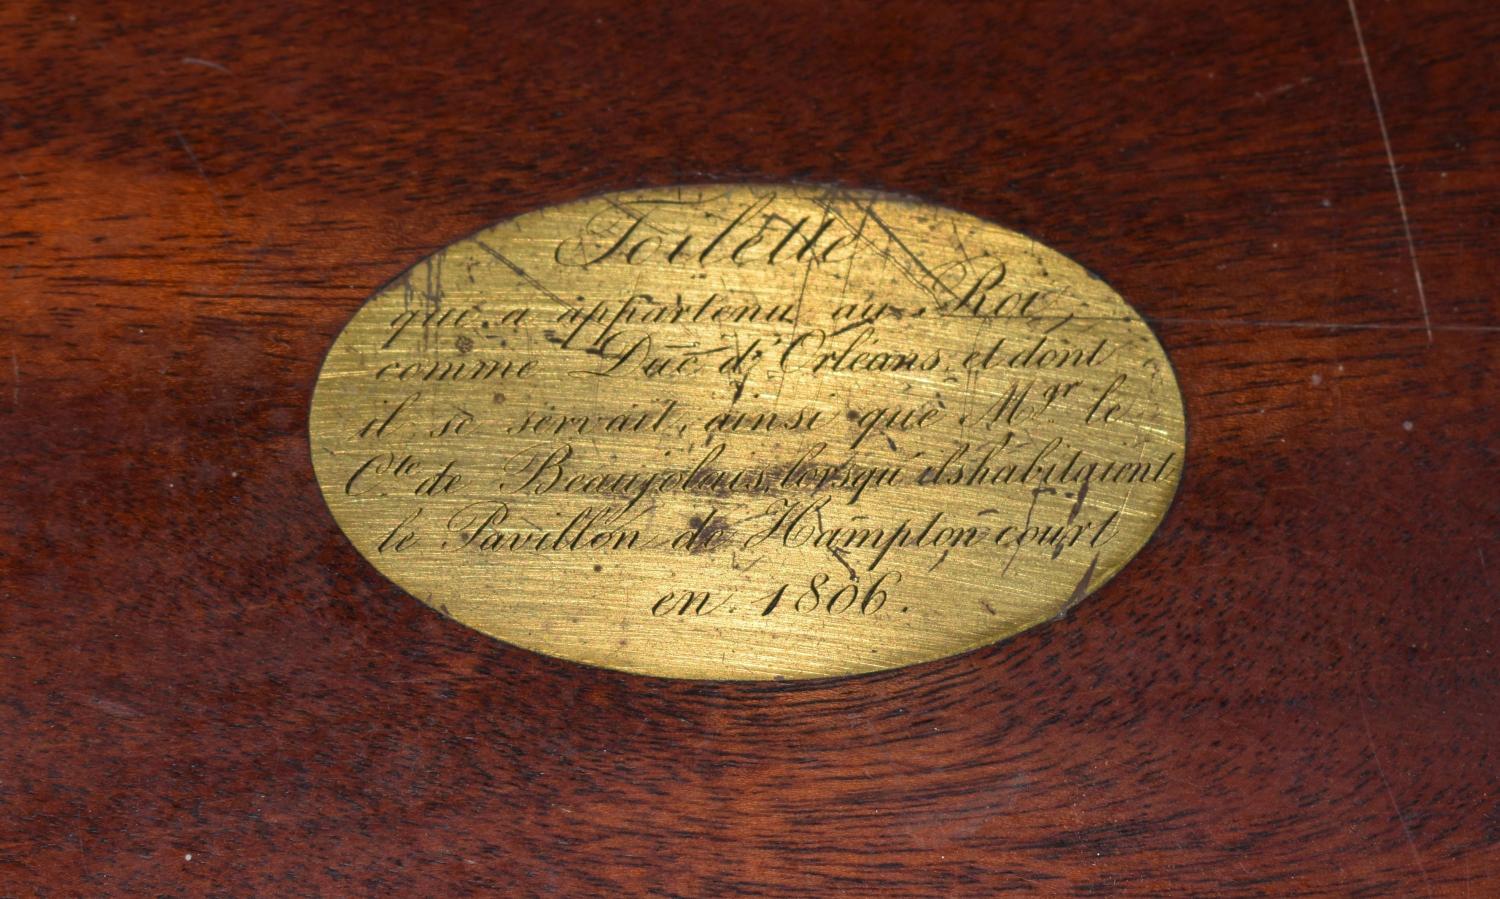 Toilette
qui a appartenu au Roi,
comme Duc d'Orléans, et dont
il se servait, ainsi que Mgr le
Cte de Beaujolais, lorsqu'ils habitaient
le Pavillon de Hampton court
en 1806.